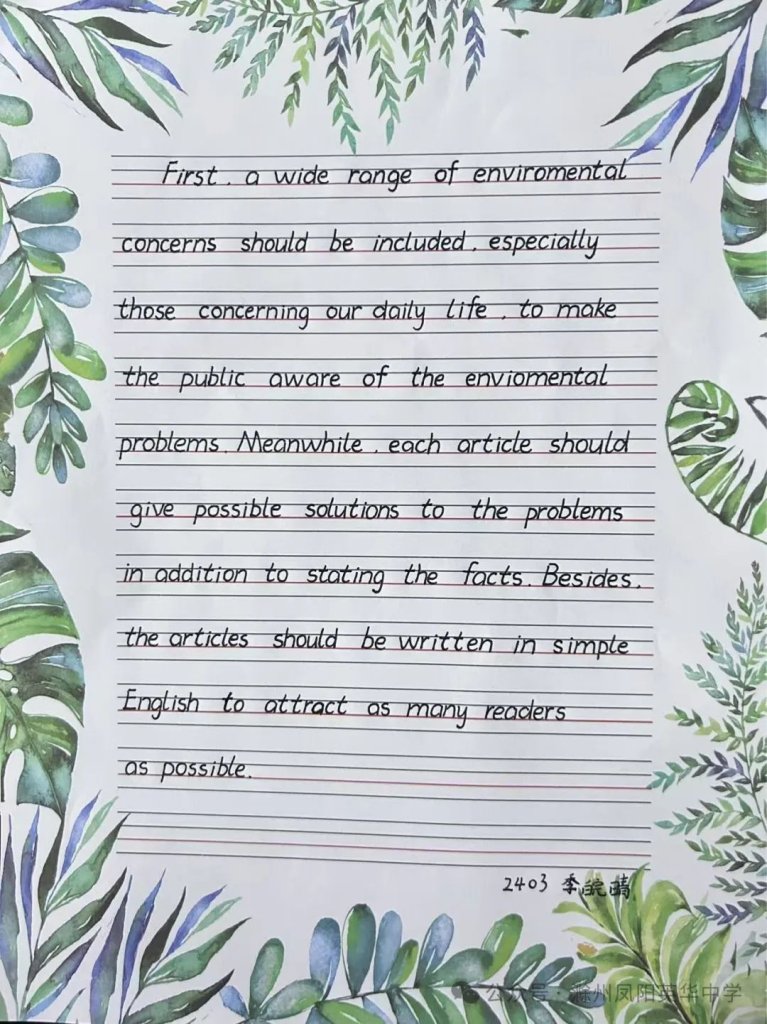 First, a wide range of enviromental
concerns should be included, especially
those concerning our daily life, to make
the public aware of the enviomental
problems. Meanwhile, each article should
give possible solutions to the problems
in addition to stating the facts. Besides,
the articles should be written in simple
English to attract as many readers
as possible.
2403 李皖晴
公众号·滁州凤阳英华中学